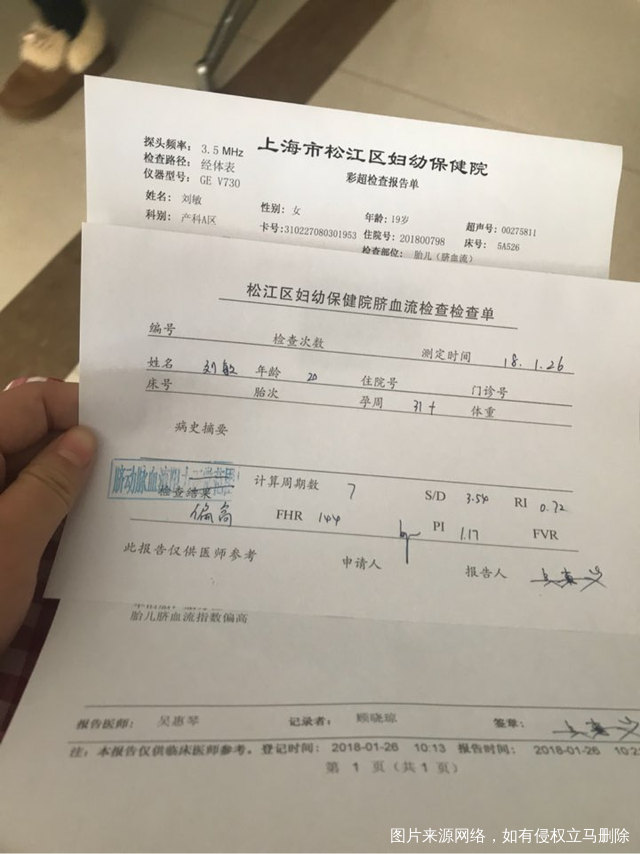 上海市松江区妇幼保健院
彩超检查报告单
探头频率: 3.5 MHz
检查路径: 经体表
仪器型号: GE V730
姓名: 刘敏 性别: 女 年龄: 19岁 超声号: 00275811
科别: 产科A区 卡号:310227080301953 住院号: 201800798 床号: 5A526
检查部位: 胎儿（脐血流）
松江区妇幼保健院脐血流检查检查单
编号 检查次数 测定时间 18.1.26
姓名 刘敏 年龄 20 住院号 门诊号
床号 胎次 孕周 31+ 体重
病史摘要
脐动脉血流
检查结果 计算周期数 7 S/D 3.54 RI 0.72
偏高 FHR 144 PI 1.17 FVR
此报告仅供医师参考 申请人 报告人
胎儿脐血流指数偏高
报告医师: 吴惠琴 记录者: 顾晓琼 签章:
注: 本报告仅供临床医师参考。登记时间: 2018-01-26 10:13 报告时间: 2018-01-26 10:2
第 1 页（共 1 页）
图片来源网络，如有侵权立马删除